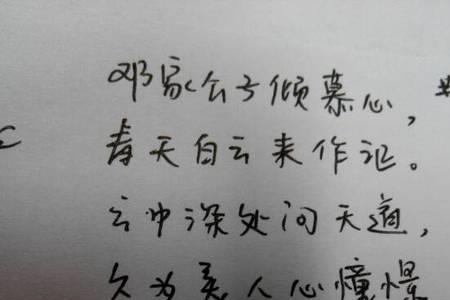 邓家公子倾慕心，
青天白云来作证。
云中深处问天道，
久为美人心憧憬